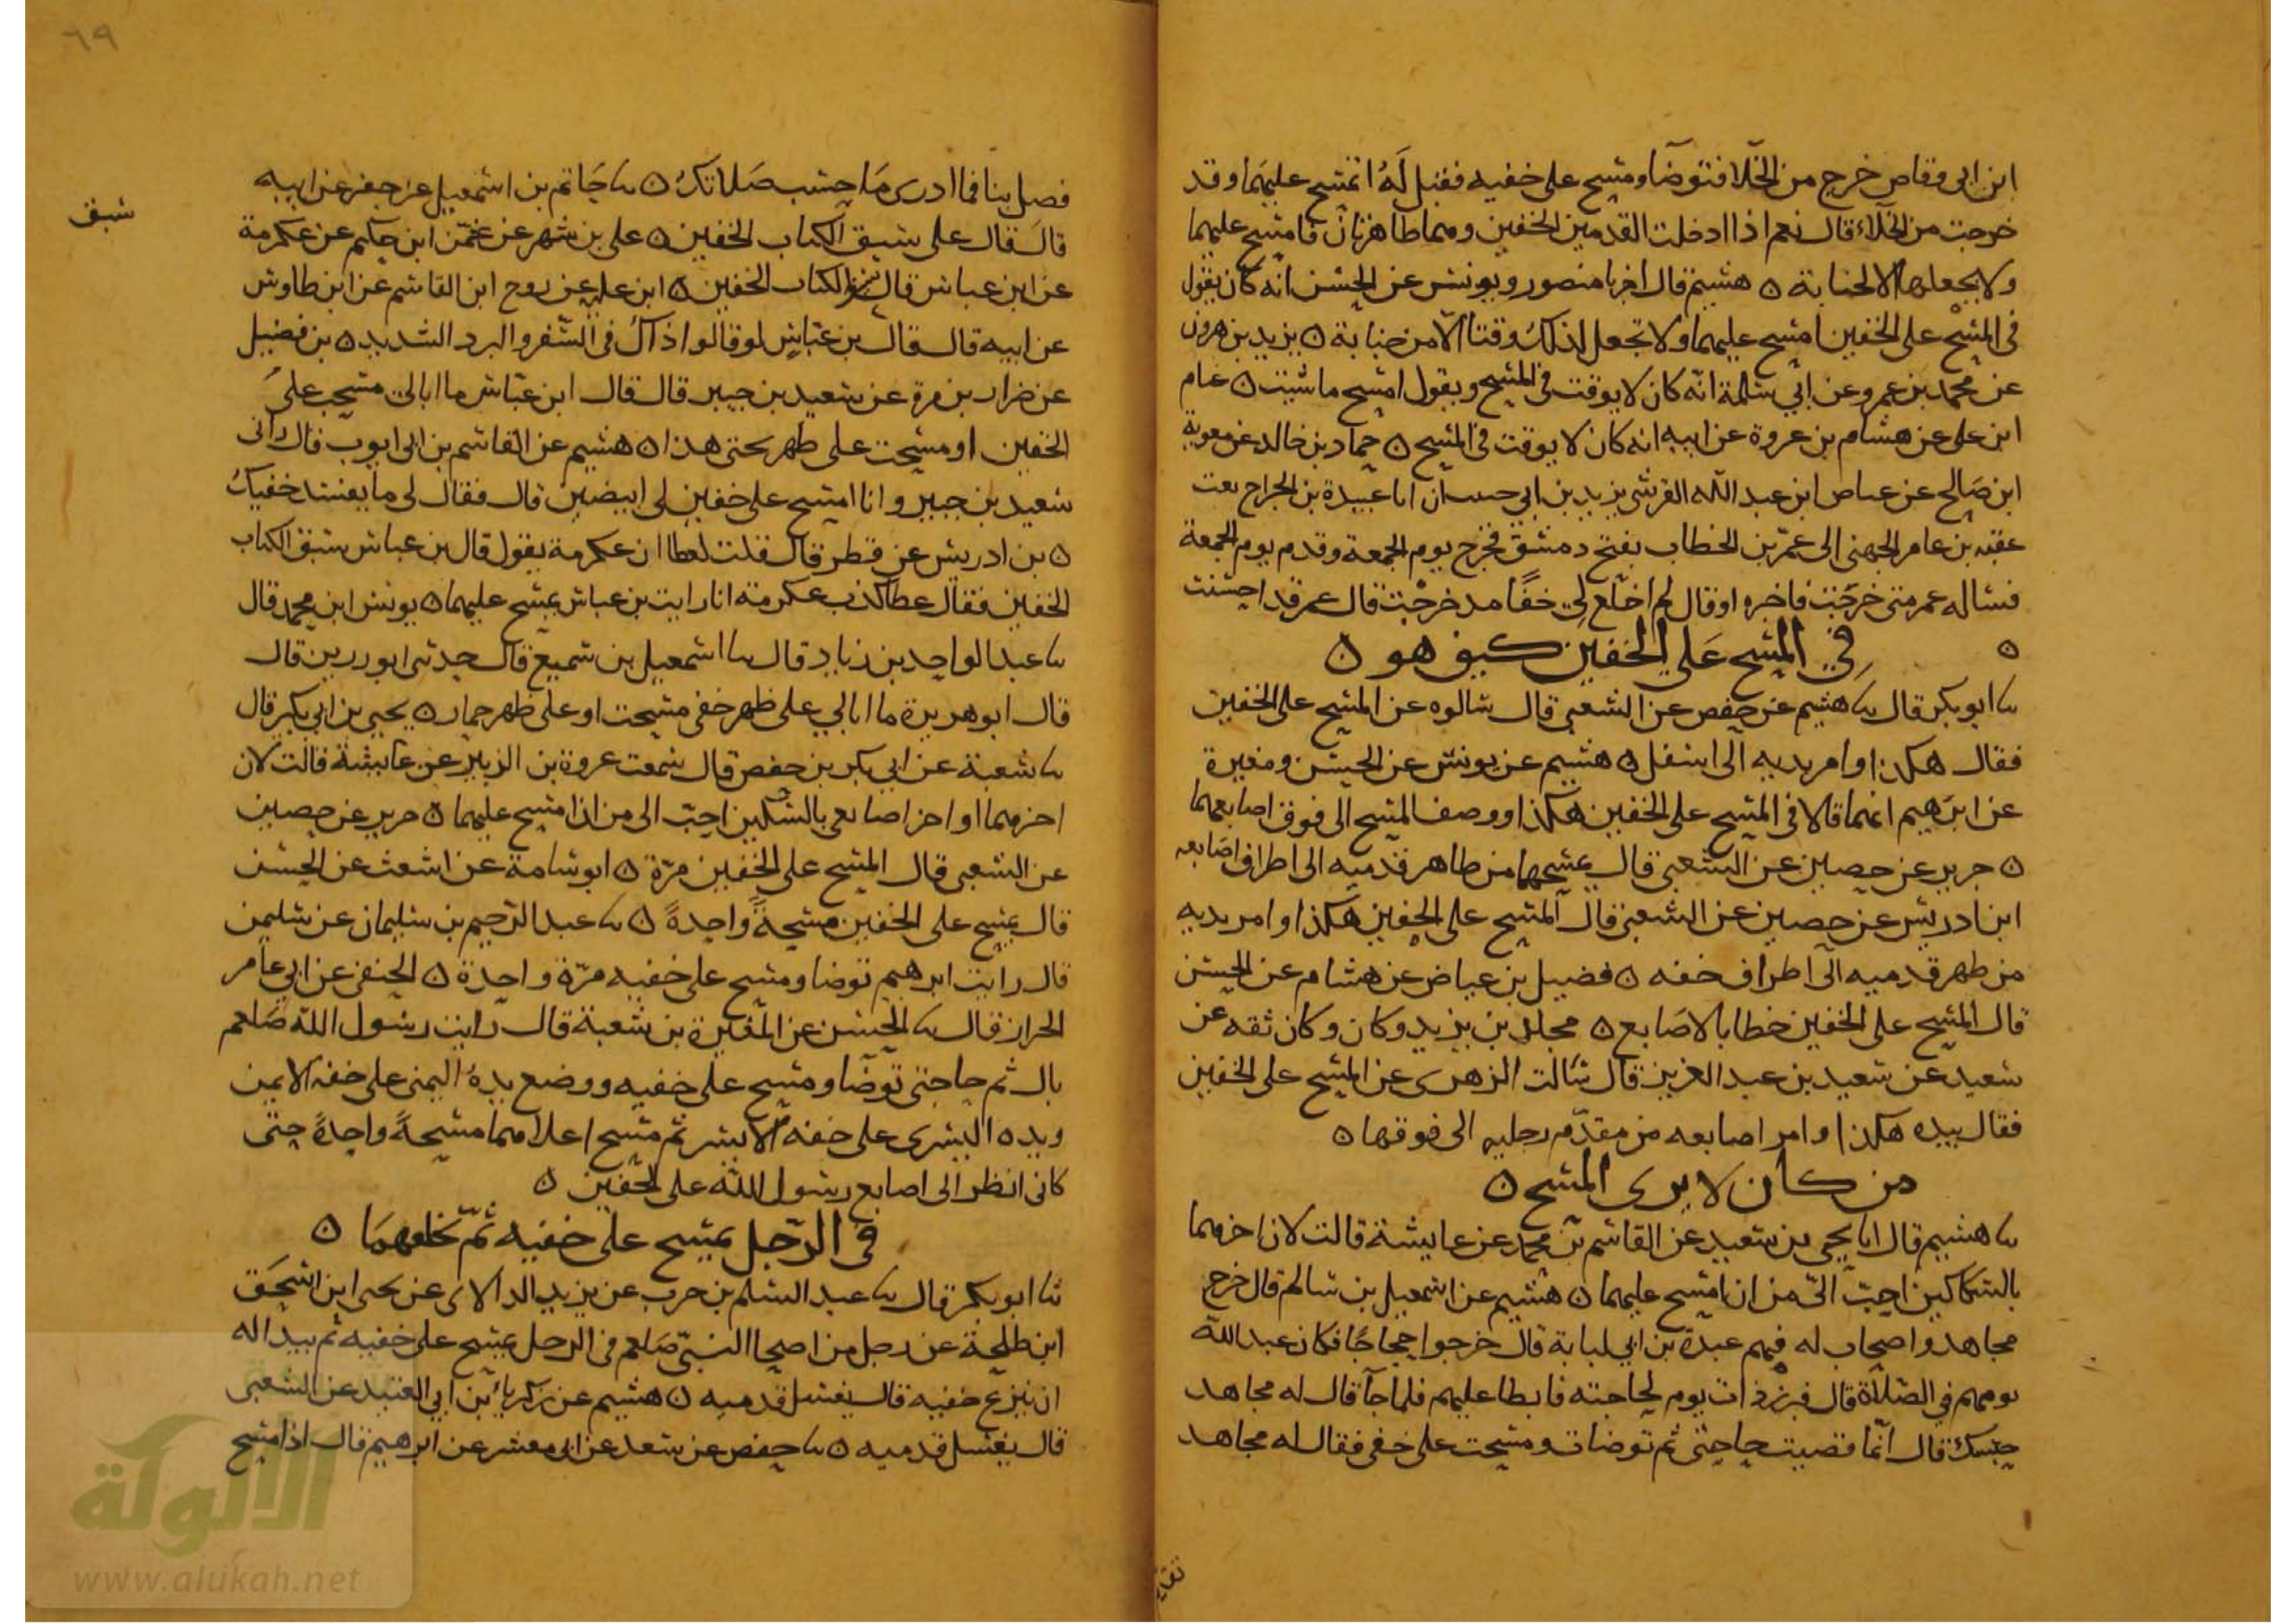 ابن ابي وقاص خرج من الخلا فتوضا ومسح على خفيه فقيل له اتمسح عليهما وقد
خرجت من الخلاء قال نعم اذا ادخلت القدمين الخفين وهما طاهرتان فامسح عليهما
ولا تخلعهما الا لجنابة ه هشيم قال اخبرنا منصور ويونس عن الحسن انه كان يقول
في المسح على الخفين امسح عليهما ولا تجعل لذلك وقتا الا من جنابة ه يزيد بن هرون
عن محمد بن عمرو عن ابي سلمة انه كان لا يوقت في المسح ويقول امسح ما شيت ه عام
ابن على عن هشام بن عروة عن ابيه انه كان لا يوقت في المسح ه حماد بن خالد عن معوية
ابن صالح عن عياض ابن عبد الله القرشي يزيد بن ابي حبيب ان ابا عبيدة بن الجراح بعث
عقبه بن عامر الجهني الى عمر بن الخطاب بفتح دمشق فخرج يوم الجمعة وقدم يوم الجمعة
فساله عمر متى خرجت فاخبره او قال لم اخلع لي خفا مذ خرجت قال عمر قد احسنت
ه في المسح على الخفين كيف هو ه
نا ابو بكر قال نا هشيم عن حفص عن الشعبي قال سالوه عن المسح على الخفين
فقال هكذا وامر يديه الى اسفل ه هشيم عن يونس عن الحسن ومغيرة
عن ابرهيم انهما قالا في المسح على الخفين هكذا ووصف المسح الى فوق اصابعهما
ه جرير عن حصين عن الشعبي قال يمسحهما من ظاهر قدميه الى اطراف اصابعه
ابن ادريس عن حصين عن الشعبي قال المسح على الخفين هكذا وامر يديه
من ظهر قدميه الى اطراف خفه ه فضيل بن عياض عن هشام عن الحسن
قال المسح على الخفين خطا بالاصابع ه مخلد بن يزيد وكان وكان ثقه عن
سعيد عن سعيد بن عبد العزيز قال سالت الزهرى عن المسح على الخفين
فقال بيده هكذا وامر اصابعه من مقدم رجليه الى فوقها ه
من كان لا يرى المسح ه
نا هشيم قال انا يحيى بن سعيد عن القاسم بن محمد عن عايشة قالت لان احزهما
بالسكاكين احب الي من ان امسح عليهما ه هشيم عن اسمعيل بن سالم قال خرج
مجاهد واصحاب له فيهم عبدة بن ابي لبابة قال خرجوا حجاجا فكان عبد الله
يومهم في الصلاة قال فبرز ذات يوم لحاجته فابطا عليهم فلما جا قال له مجاهد
حبسك قال انما قضيت حاجتي ثم توضات ومسحت على خفي فقال له مجاهد
٦٩
فصل بنا فما ادرى ما حسب صلاتك ه نا حاتم بن اسمعيل عن جعفر عن ابيه
سبق
قال قال على سبق الكتاب الخفين ه على بن مسهر عن عثمن ابن حكيم عن عكرمة
عن ابن عباس قال سبق الكتاب الخفين ه ابن عليه عن روح ابن القاسم عن ابن طاوس
عن ابيه قال قال بن عباس لو قالوا ذاك في السفر والبرد الشديد ه بن فضيل
عن ضرار بن مرة عن سعيد بن جبير قال قال ابن عباس ما ابالي مسحت على
الخفين او مسحت على ظهر بختى هذا ه هشيم عن القاسم بن ابى ايوب قال رانى
سعيد بن جبير وانا امسح على خفين لى ابيضين قال فقال لى ما يفسد خفيك
ه بن ادريس عن فطر قال قلت لعطا ان عكرمة يقول قال بن عباس سبق الكتاب
الخفين فقال عطا كذب عكرمة انا رايت بن عباس يمسح عليهما ه يونس ابن محمد قال
نا عبد الواحد بن زياد قال نا اسمعيل بن سميع قال حدثنى ابو رزين قال
قال ابو هريرة ما ابالي على ظهر خفى مسحت او على ظهر حمار ه يحيى بن ابي بكير قال
نا شعبة عن ابي بكر بن حفص قال سمعت عروة بن الزبير عن عايشة قالت لان
احزهما او احز اصابعي بالسكين احب الى من ان امسح عليهما ه جرير عن حصين
عن الشعبى قال المسح على الخفين مرة ه ابو سامة عن اشعث عن الحسن
قال يمسح على الخفين مسحة واحدة ه نا عبد الرحيم بن سليمان عن سليمن
قال رايت ابرهيم توضا ومسح على خفيه مرة واحدة ه الحنفى عن ابى عامر
الخراز قال نا الحسن عن المغيرة بن شعبة قال رايت رسول الله صلعم
بال ثم جا حتى توضا ومسح على خفيه ووضع يده اليمنى على خفه الايمن
ويده اليسرى على خفه الايسر ثم مسح اعلاهما مسحة واحدة حتى
كانى انظر الى اصابع رسول الله على الخفين ه
في الرجل يمسح على خفيه ثم يخلعهما ه
نا ابو بكر قال نا عبد السلم بن حرب عن يزيد الدالانى عن يحيى ابن اسحق
ابن طلحة عن رجل من اصحاب النبي صلعم في الرجل يمسح على خفيه ثم يبدا له
ان ينزع خفيه قال يغسل قدميه ه هشيم عن زكريا بن ابي العتيد عن الشعبى
قال يغسل قدميه ه نا حفص عن سعد عن ابى معشر عن ابرهيم قال اذا مسح
الألوكة
www.alukah.net